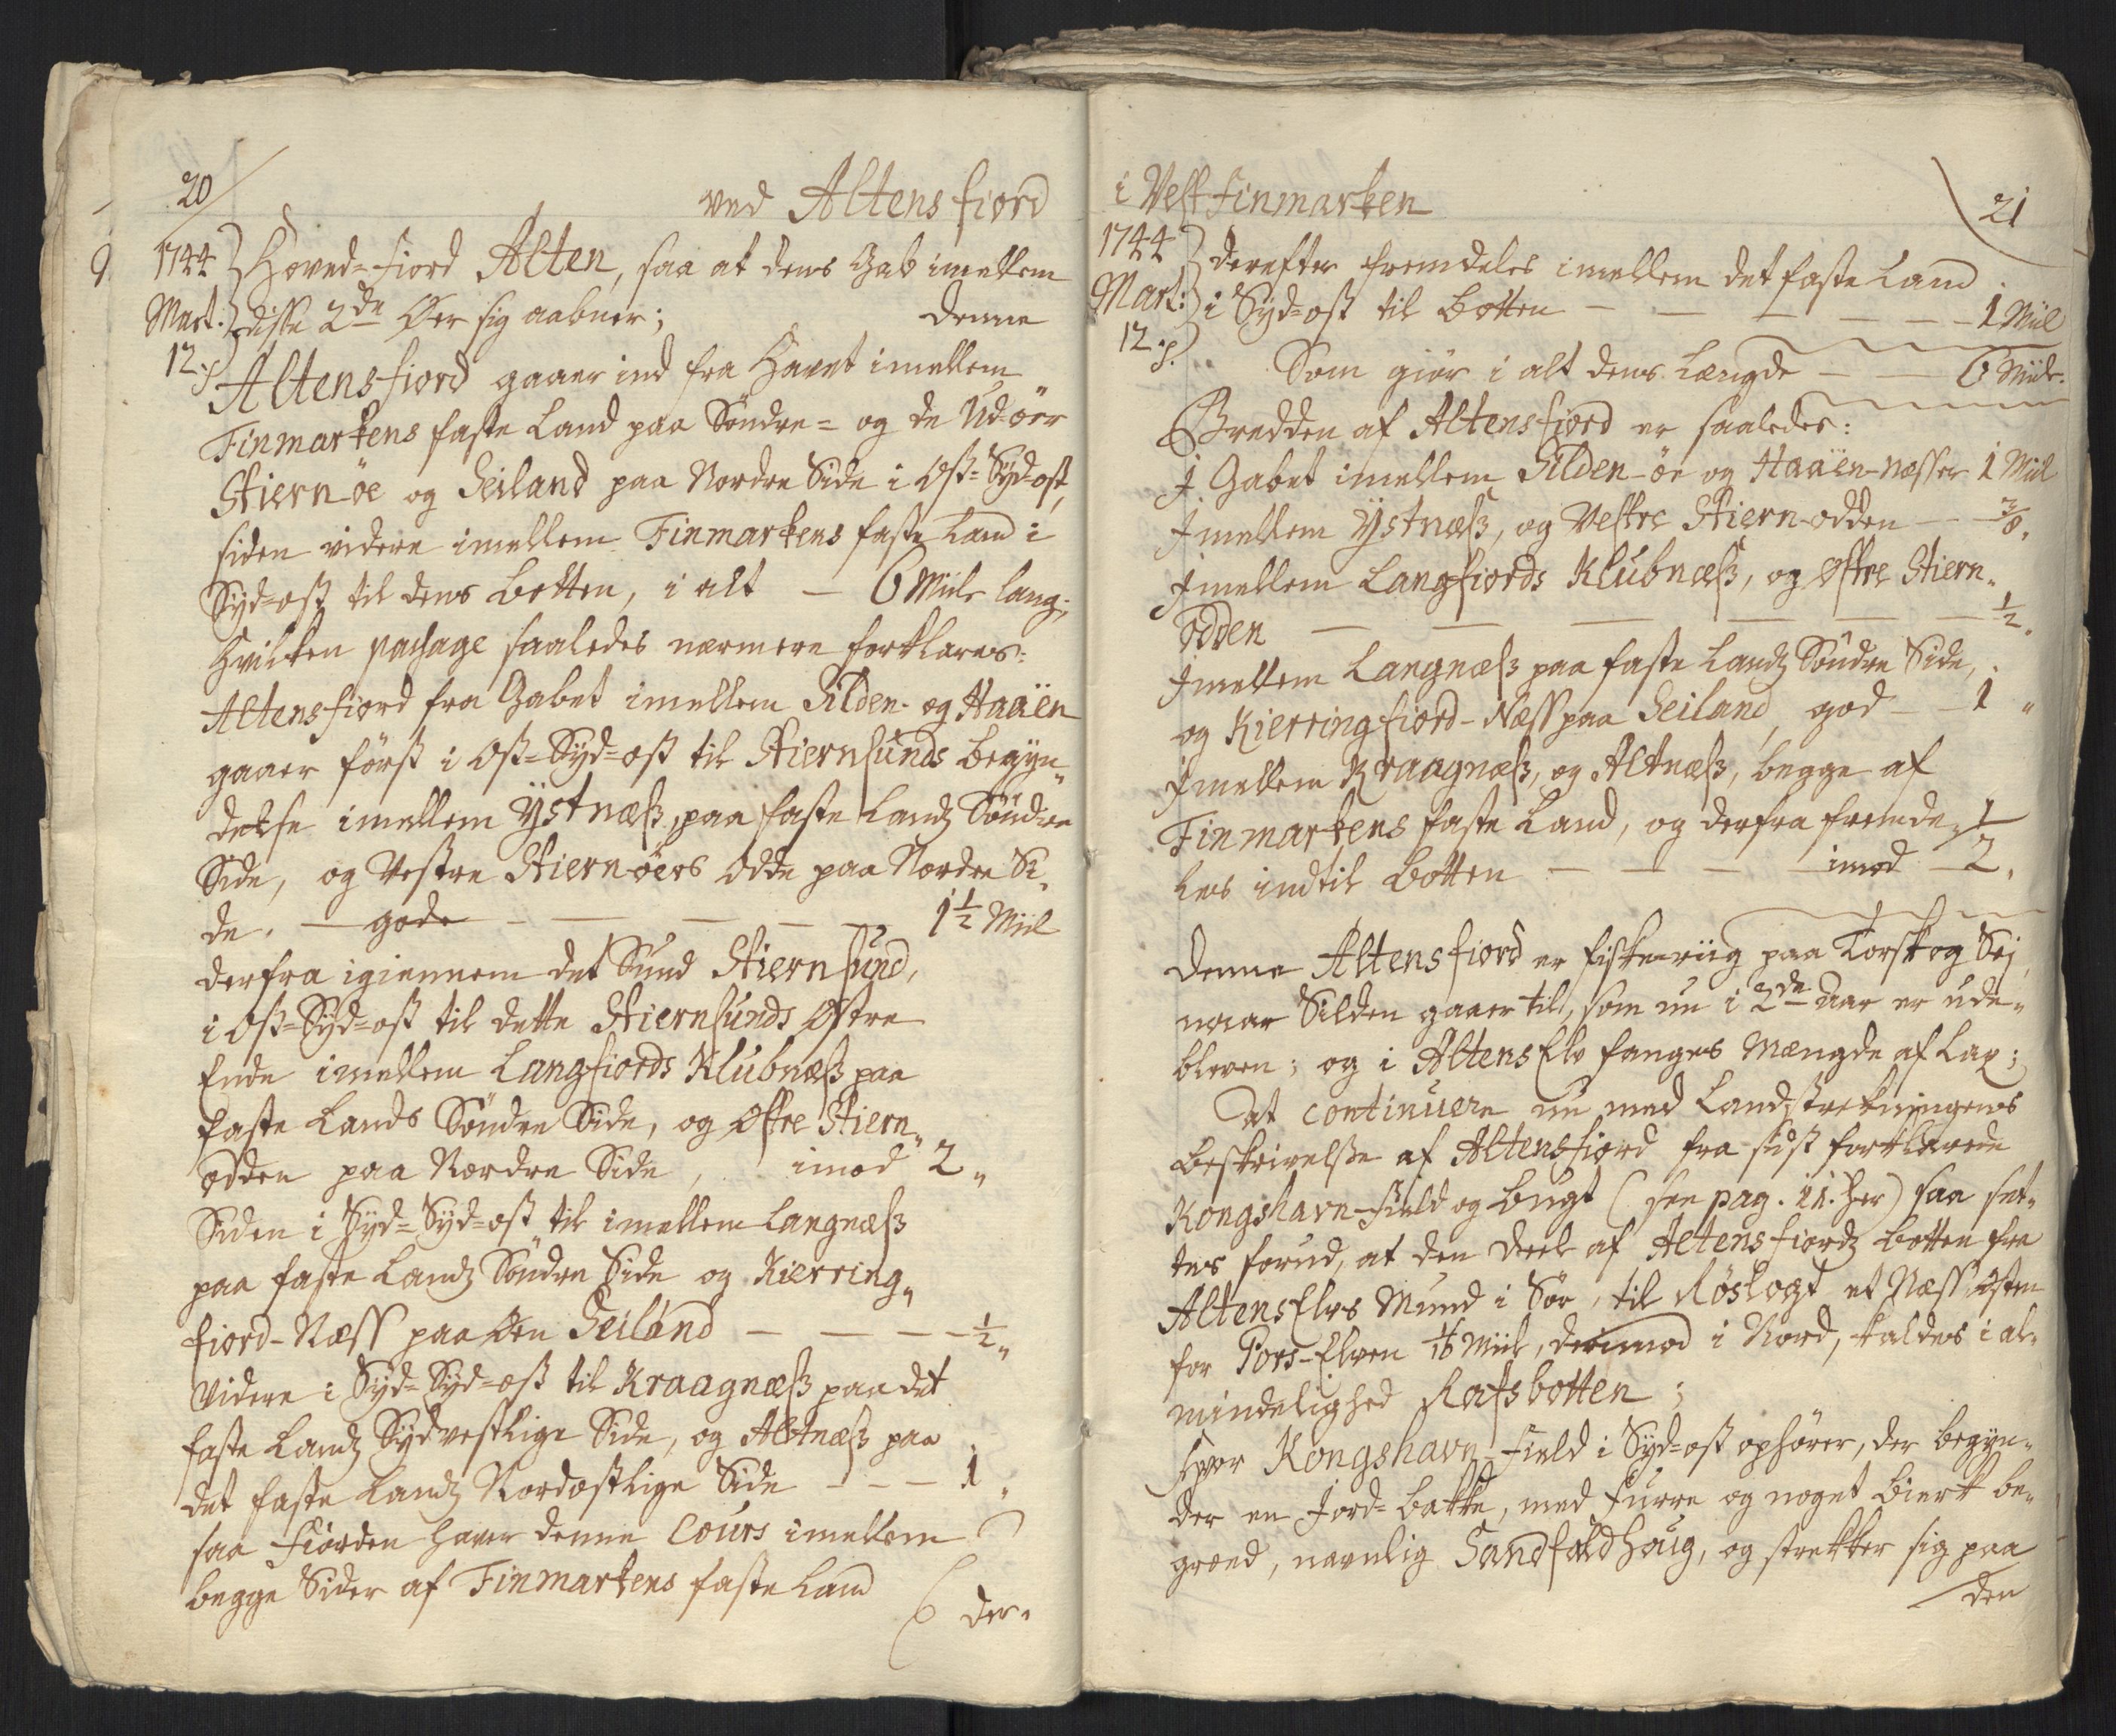 20
ved Altens fiord
1744 Hoved-fiord Alten, saa at dens Gab imellem
Mart: disse 2de Øer sig aabner; denne
12.
Altensfiord gaaer ind fra Havet imellem
Finmarkens faste Land paa Söndre- og de Ud-öer
Stiern-öe og Seiland paa Nordre Side i Ost-Syd-ost,
siden videre imellem Finmarkens faste Land i
Syd-ost til dens Botten, i alt — 6 Miile lang;
Hvilken passage saaledes nærmere forklares:
Altensfiord fra Gabet imellem Silden- og Haaën
gaaer först i Ost-Syd-ost til Stiernsunds Begyn„
delse imellem Ÿstnæss, paa faste Landz Söndre
Side, og Vestre Stiern-öens Odde paa Nordre Si„
de. — gode — — — — 1 1/2 Miil
derfra igiennem det Sund Stiernsund,
i Ost-Syd-ost til dette Stiernsunds Østre
Ende imellem Langfiords Klubnæss paa
faste Lands Söndre Side, og Østre Stiern„
odden paa Nordre Side, imod 2 „
Siden i Syd-Syd-ost til imellem Langnæss
paa faste Landz Söndre Side og Kierring„
fiord-Næss paa Øen Seiland — — — 1/2 „
Videre i Syd-Syd-ost til Kraagnæss paa det
faste Landz Sydvestlige Side, og Altnæss paa
det faste Landz Nordostlige Side — — — 1 „
saa Fiorden haver denne Cours imellem
begge Sider af Finmarkens faste Land
der„
i Vest Finmarken
21
1744 derefter fremdeles imellem det faste Land
Mart: i Syd-ost til Botten — — — — — 1 Miil
12.
Som giör i alt dens Længde — — 6 Miile.
Bredden af Altensfiord er saaledes:
I Gabet imellem Silden-öe og Haaën-næsser 1 Miil
Imellem Ÿstnæss, og Vestre Stiern-odden — 3/8.
Imellem Langfiords Klubnæss, og Østre Stiern„
odden — — — — — 1/2.
Imellem Langnæss paa faste Landz Söndre Side,
og Kierringfiord-Næss paa Seiland, god — 1 „
Imellem Kraagnæss, og Altnæss, begge af
Finmarkens faste Land, og derfra fremde„
les indtil Botten — — — imod 1/2.
Denne Altensfiord er fiske-riig paa Torsk og Sej,
naar Silden gaaer til, som nu i 2de Aar er ude„
bleven; og i Altens Elv fanges Mængde af Lax;
At continuere nu med Landstrekningens
Beskrivelse af Altensfiord fra sidst forklarede
Kongshavn-field og Bugt (see pag. 11. her) saa set„
tes forud, at den Deel af Altens fiordz Botten fra
Altens Elvs Mund i Sör, til Röskogt et Næss Østen
for Pors-Elven 1/16 Miil, derimod i Nord, kaldes i al„
mindelighed Rafsbotten;
Hvor Kongshavn-field i Syd-ost ophörer, der begyn„
der en Jord-Bakke, med Furre og noget Bierk be„
groed, navnlig Sandfaldhaug, og strekker sig paa
den